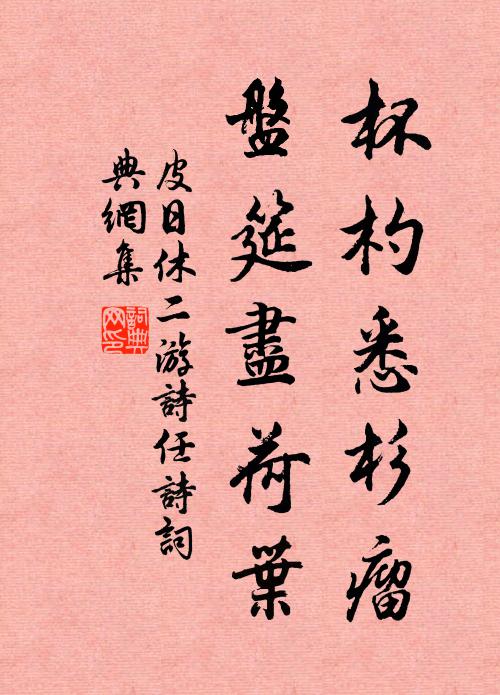 杯杓悉杉瘤
盤筵盡荷葉
皮日休二游詩任詩詞
典網集
詞典
网印